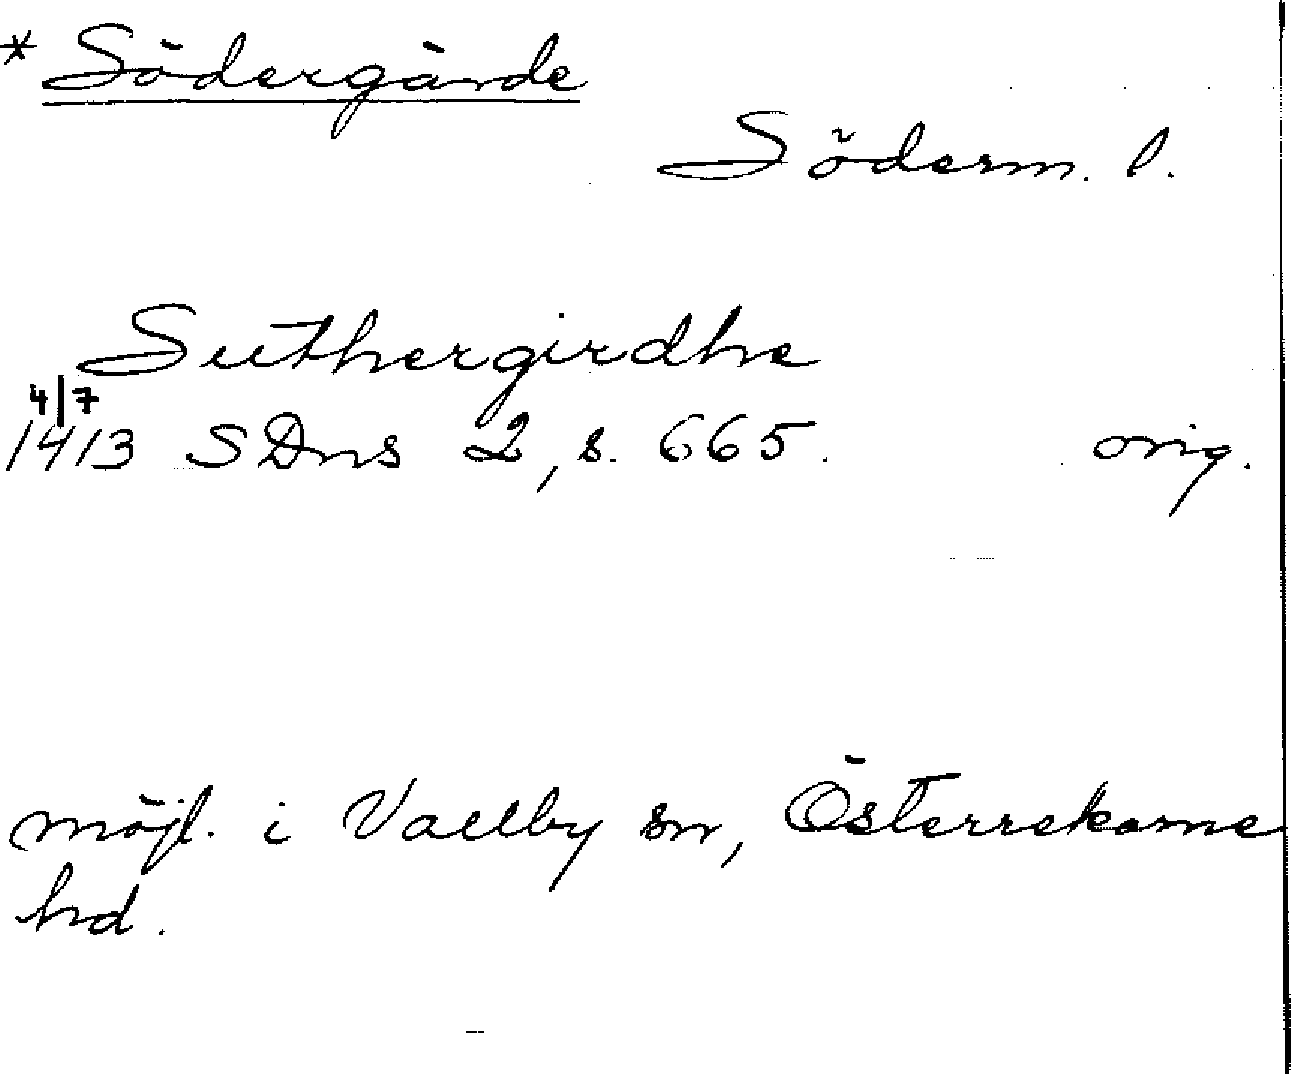 * Södergärde
Söderm. l.
Suthergirdhe
4/7
1413 SDns 2, s. 665. orig.
möjl. i Vallby sn, Österrekarne
hd.